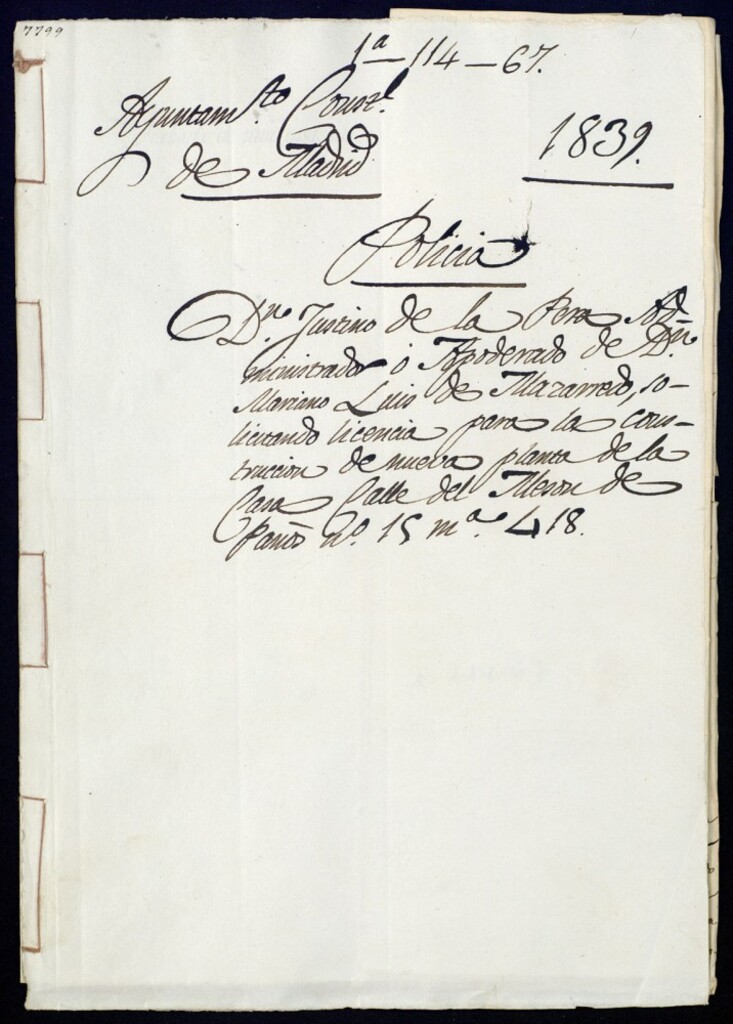 7799
1ª - 114 - 67.
Ayuntam.to Const.l
de Madrid
1839.
Policia
D.n Justino de la Pera Ad-
ministrador ó Apoderado de D.n
Mariano Luis de Mazarredo, so-
licitando licencia para la cons-
truccion de nueva planta de la
Casa Calle del Meson de
Paños n.º 15 m.ª 418.